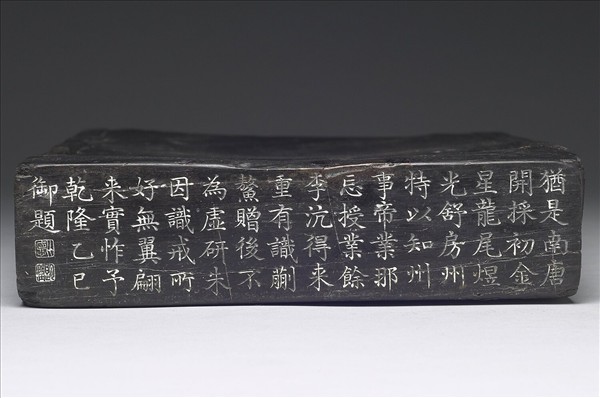 猶是南唐
開採初金
星龍尾煜
光舒房州
特以知州
事帝業那
忘授業餘
李沆得来
重有識蒯
鰲贈後不
為虚研朱
因識戒所
好無翼翩
来實怍予
乾隆乙巳
御題